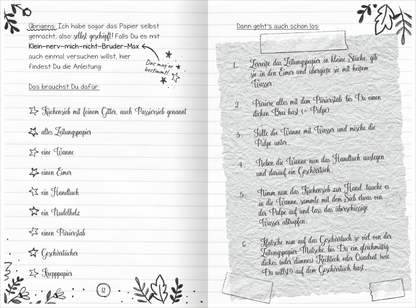 Übrigens: Ich habe sogar das Papier selbst
gemacht, also selbst geschöpft! Falls Du es mit
Klein-nerv-mich-nicht-Bruder-Max
auch einmal versuchen willst, hier
findest Du die Anleitung
Das mag er
bestimmt!
Das brauchst Du dafür:
Küchensieb mit feinem Gitter, auch Passiersieb genannt
altes Zeitungspapier
eine Wanne
einen Eimer
ein Handtuch
ein Nudelholz
einen Pürierstab
Geschirrtücher
Krepppapier
Dann geht's auch schon los:
1. Zerreiße das Zeitungspapier in kleine Stücke, gib
sie in den Eimer und übergieße sie mit heißem
Wasser.
2. Püriere alles mit dem Pürierstab bis Du einen
dicken Brei hast (= Pulpe).
3. Fülle die Wanne mit Wasser und mische die
Pulpe unter.
4. Neben die Wanne nun das Handtuch auslegen
und darauf ein Geschirrtuch.
5. Nimm nun das Küchensieb zur Hand, tauche es
in die Wanne, sammle mit dem Sieb etwas von
der Pulpe auf und lass das überschüssige
Wasser abtropfen.
6. Klatsche nun auf das Geschirrtuch so viel von der
Zeitungspapier-Matsche, bis Du ein gleichmäßig
dickes (oder dünnes) Rechteck oder Quadrat (wie
Du willst!) auf dem Geschirrtuch hast.